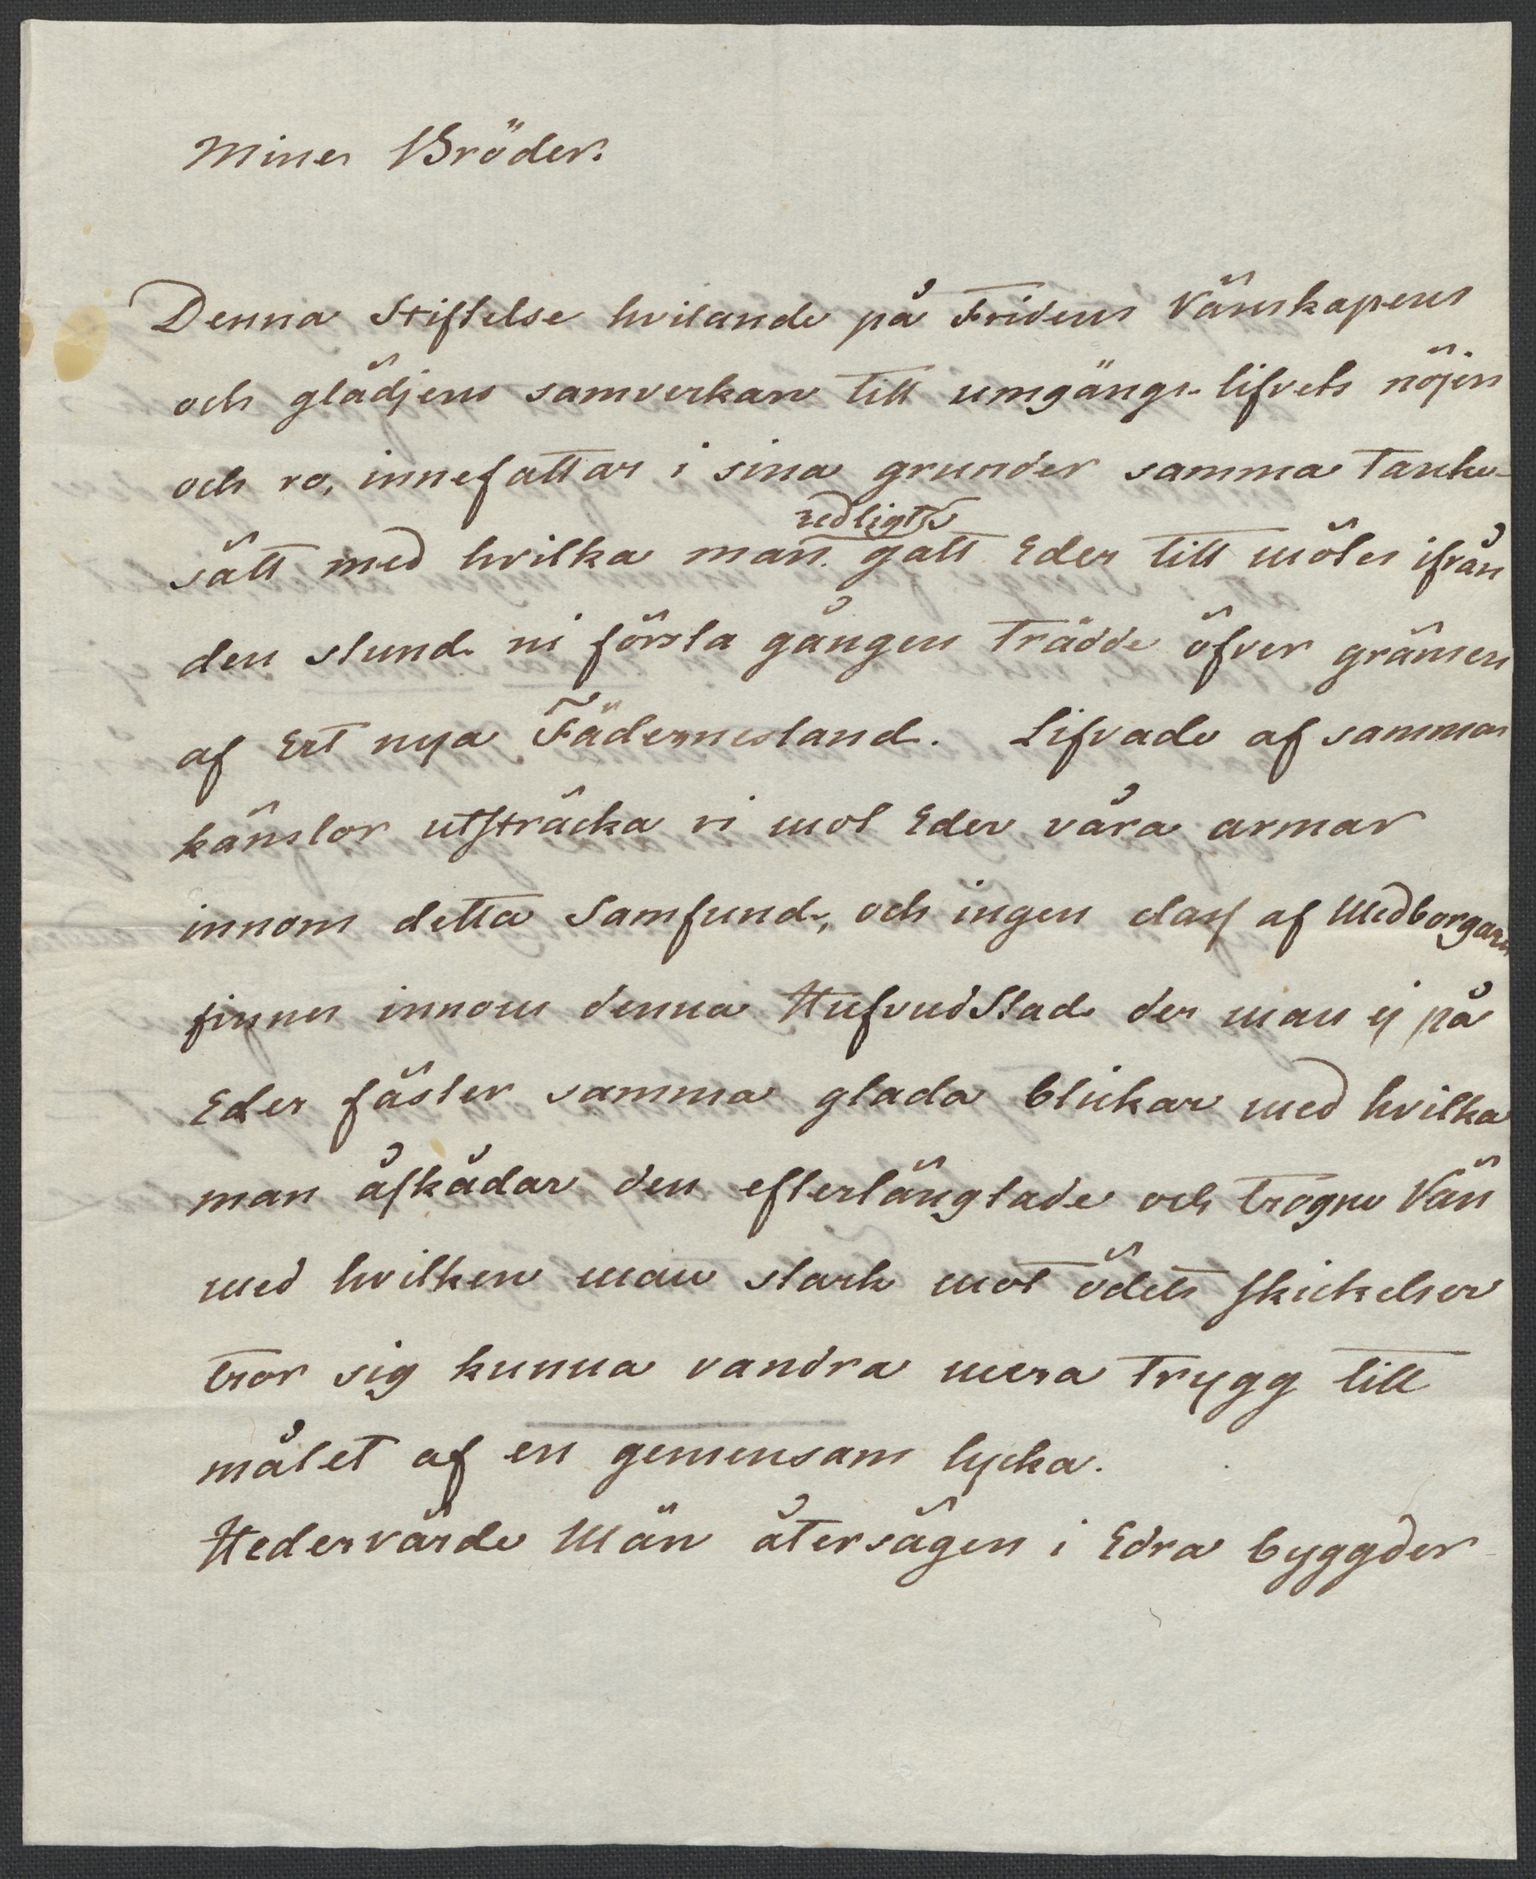 Mine Bröder.
Denna Stiftelse hvilande på Fridens Vänskapens
och glädjens samverkan till umgängs-lifvets nöjen
och ro, innefattar i sina grunder samma tanke-
redligt
sätt med hvilka man gått Eder till mötes ifrån
den stund ni första gången trädde öfver gränsen
af Ert nya Fädernesland. Lifvade af samma
känslor utsträcka vi mot Eder våra armar
innom detta Samfund, och ingen class af Medborgare
finnes innom denna Hufvudstad der man ej på
Eder fäster samma glada blickar med hvilka
man åskådar den efterlängtade och trogne Vän
med hvilken man stark mot ödets skickelser
tror sig kunna vandra mera trygg till
målet af en gemensam lycka.
Hedervärde Män återsägen i Edra bygder